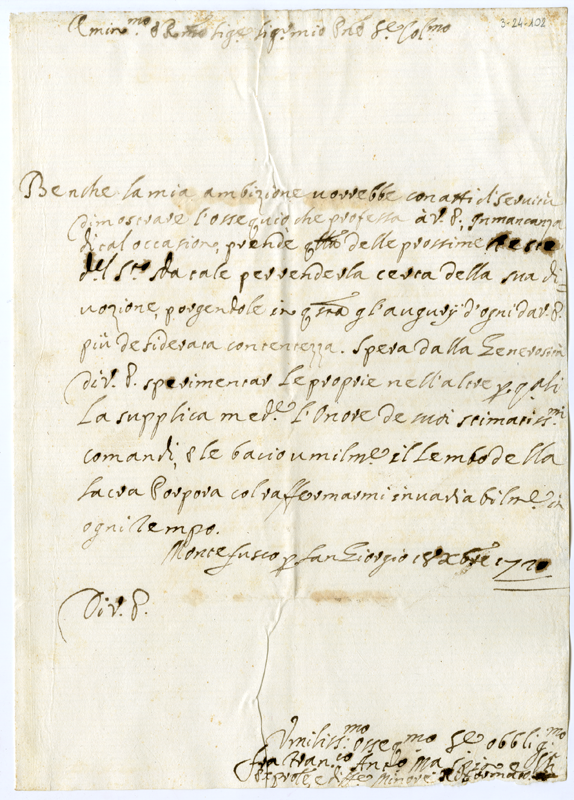 3-24-102
Emin.mo e R.mo Sig.re Sig.r mio P.ne e Col.mo
Benche la mia ambizione vorrebbe con atti di servitù
dimostrare l'ossequio che professa à V. E., in mancanza
di tal occasione, prende q.sta delle prossime feste
del S.to Natale per renderla certa della sua di=
vozione, porgendole in q.sto gl'augurij d'ogni da V. E.
più desiderata contentezza. Spera dalla Generosità
di V. E. sperimentar le proprie nell'altre p. q.ali
la supplica med.e l'Onore de suoi stimatiss.mi
comandi, e le bacio umilm.e il Lembo della
Sacra Porpora col raffermarmi invariabilm.e in
ogni tempo.
Monte fusco p. San Giorgio 18 Xbre 172
Di V. E.
Umiliss.mo Osseq.mo Se obblig.mo
fra Fran.co Ant.o Ma
Exprole, e diff.e Minore Reformato